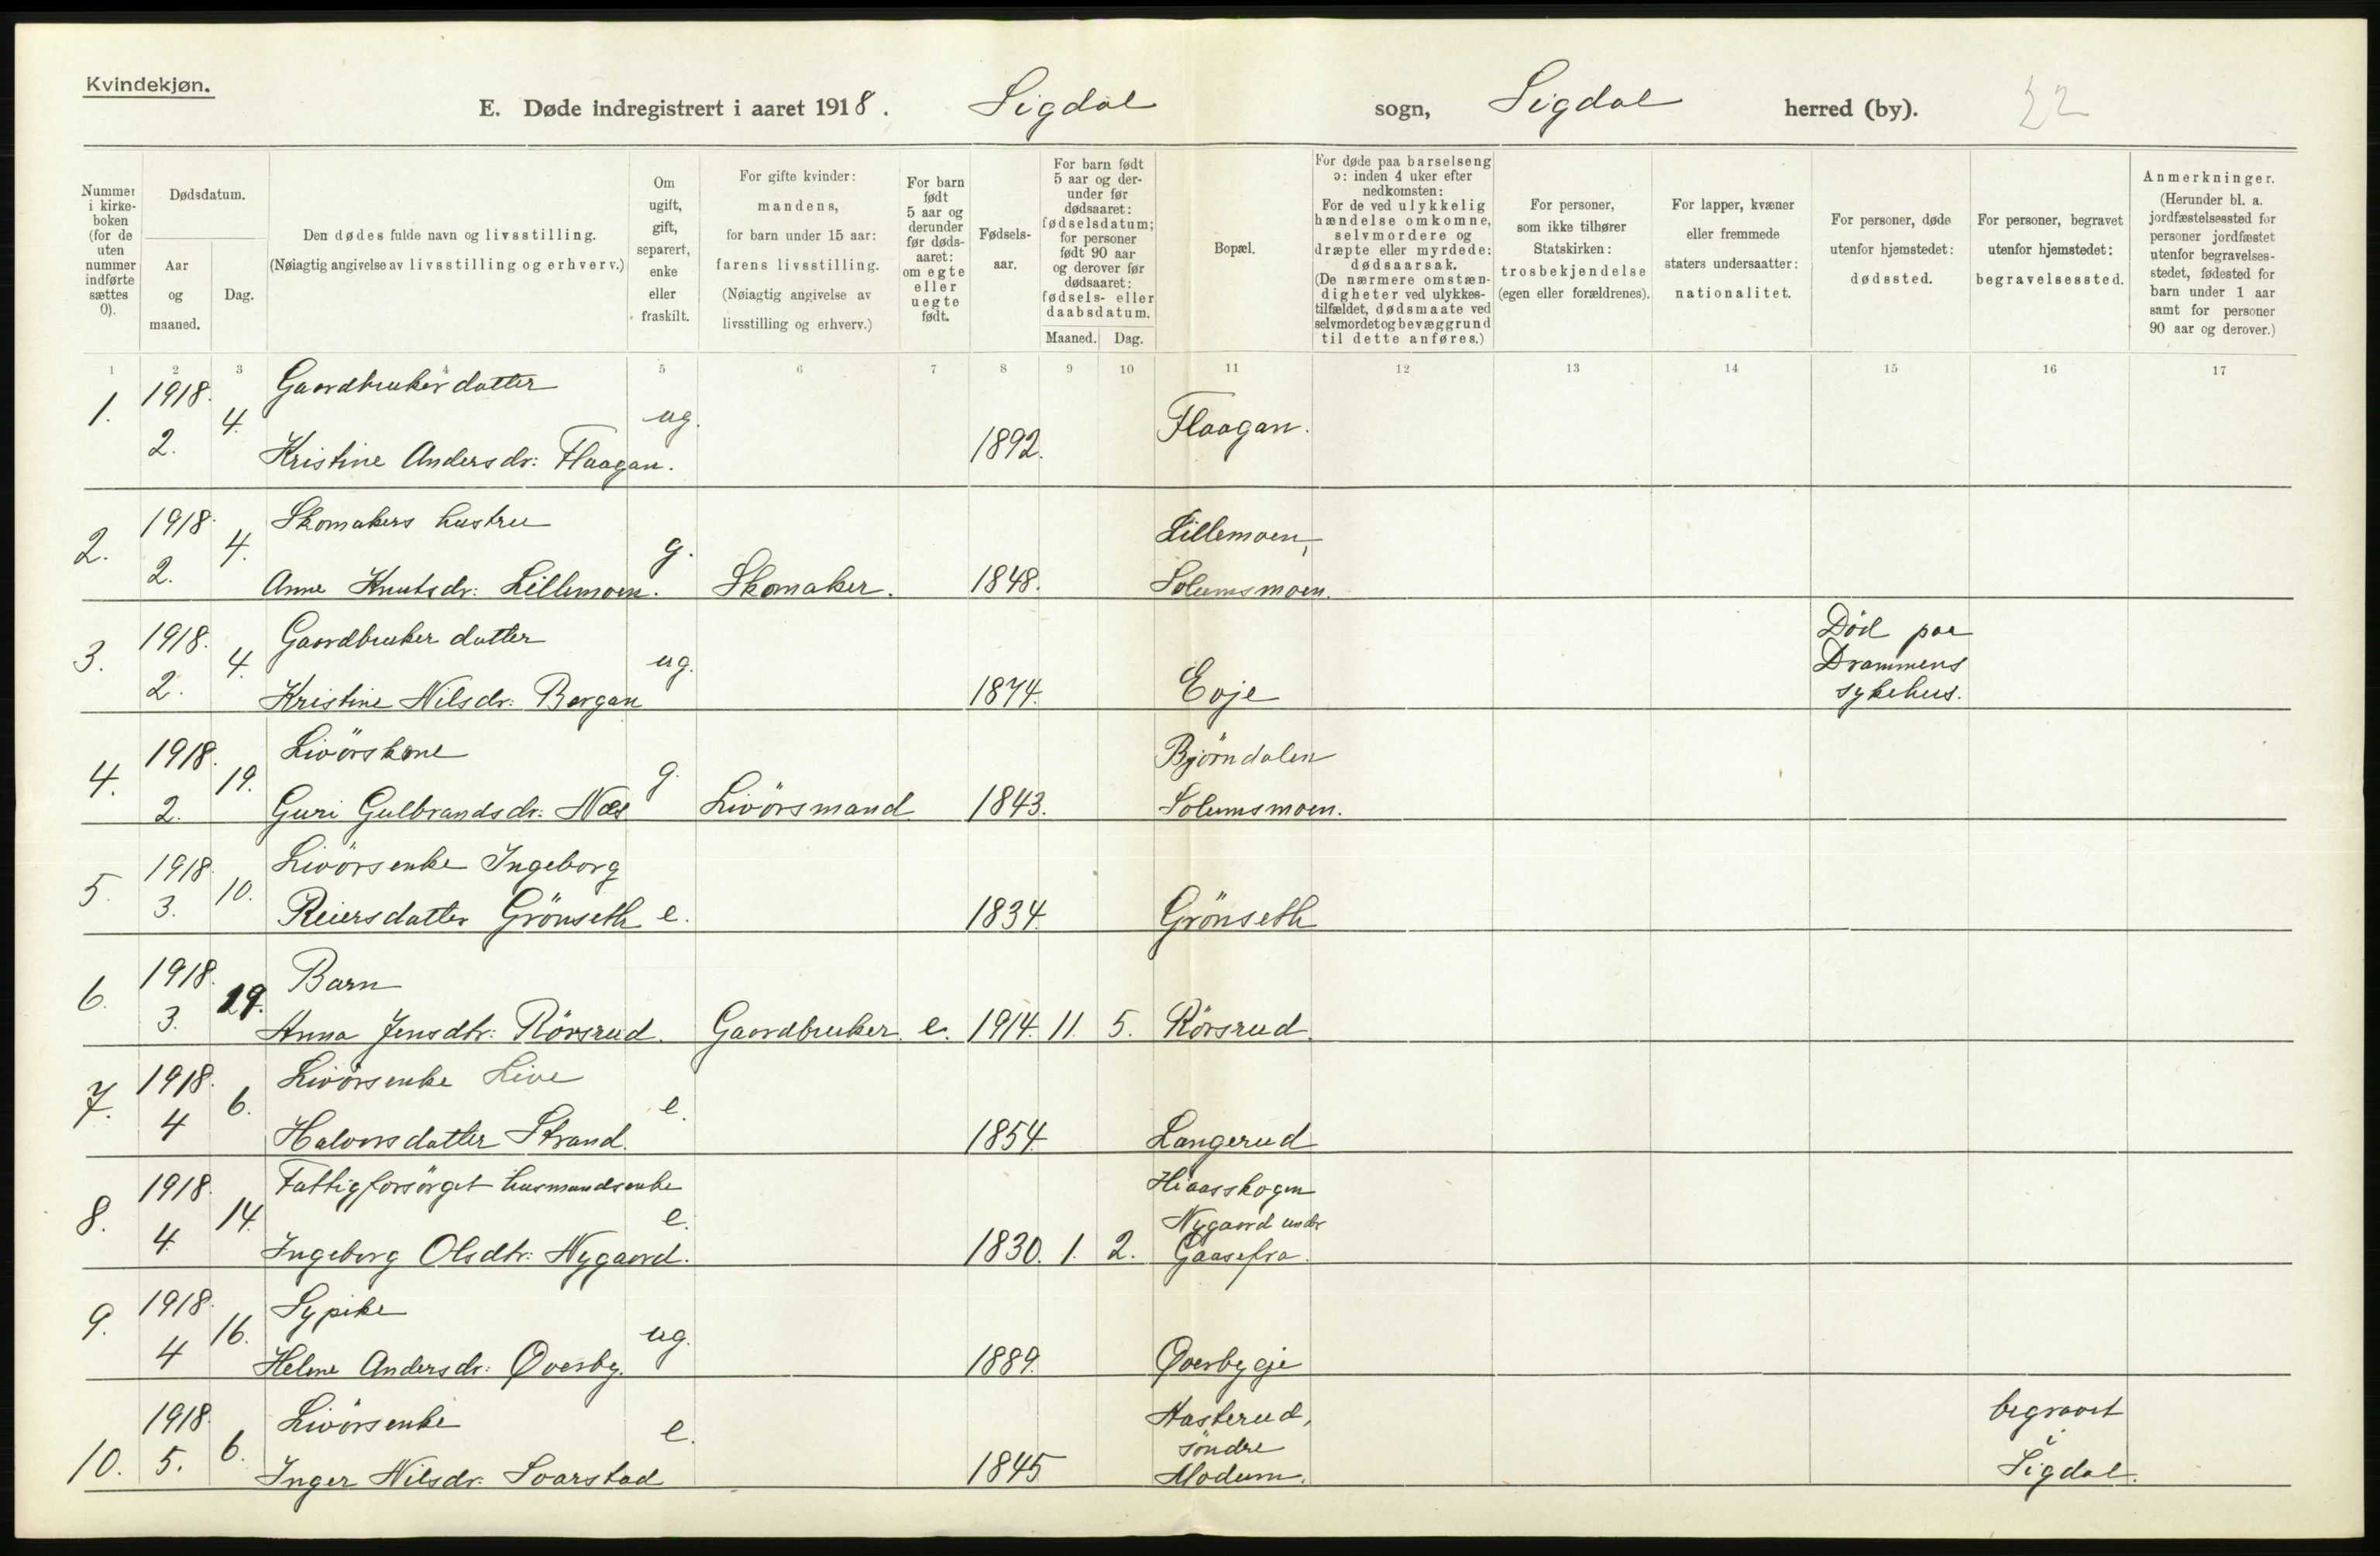 Kvindekjøn.
E. Døde indregistrert i aaret 1918. Sigdal sogn, Sigdal herred (by). 22
Nummer i kirke-boken (for de uten nummer indførte sættes 0).
Dødsdatum.
Aar og maaned.
Dag.
Den dødes fulde navn og livsstilling.
(Nøiagtig angivelse av livsstilling og erhverv.)
Om ugift, gift, separert, enke eller fraskilt.
For gifte kvinder: mandens, for barn under 15 aar: farens livsstilling.
(Nøiagtig angivelse av livsstilling og erhverv.)
For barn født 5 aar og derunder før døds-aaret: om egte eller uegte født.
Fødsels-aar.
For barn født 5 aar og der-under før dødsaaret: fødselsdatum; for personer født 90 aar og derover før dødsaaret: fødsels- eller daabsdatum.
Maaned. Dag.
Bopæl.
For døde paa barselseng ɔ: inden 4 uker efter nedkomsten:
For de ved ulykkelig hændelse omkomne, selvmordere og dræpte eller myrdede: dødsaarsak.
(De nærmere omstæn-digheter ved ulykkes-tilfældet, dødsmaate ved selvmordet og bevæggrund til dette anføres.)
For personer, som ikke tilhører Statskirken: trosbekjendelse (egen eller forældrenes).
For lapper, kvæner eller fremmede staters undersaatter: nationalitet.
For personer, døde utenfor hjemstedet: dødssted.
For personer, begravet utenfor hjemstedet: begravelsessted.
Anmerkninger.
(Herunder bl. a. jordfæstelsessted for personer jordfæstet utenfor begravelses-stedet, fødested for barn under 1 aar samt for personer 90 aar og derover.)
1 2 3 4 5 6 7 8 9 10 11 12 13 14 15 16 17
1. 1918. 4. Gaardbruker datter ug. Flaagan.
2. Kristine Andersdr: Flaagan. 1892.
2. 1918. 4. Skomakers hustru g. Lillemoen,
2. Anne Knutsdr: Lillemoen. Skomaker. 1848. Solumsmoen.
3. 1918. 4. Gaardbruker datter ug. Død paa Drammens
2. Kristine Nilsdr: Bergan 1874. Evje sykehus.
4. 1918. 19. Livörskone g. Björndalen
2. Guri Gulbrandsdr: Næs Livörsmand 1843. Solumsmoen.
5. 1918. 10. Livörsenke Ingeborg
3. Reiersdatter Grönseth e. 1834. Grönseth
6. 1918. 19. Barn
3. Anna Jensdtr: Rörsrud. Gaardbruker. e. 1914. 11. 5. Rörsrud.
7. 1918. 6. Livörsenke Live e.
4 Halvorsdatter Strand. 1854. Langerud
8. 1918. 14. Fattigforsörget husmandsenke e. Hiaasskogen
Nygaard under
4. Ingeborg Olsdtr: Nygaard. 1830. 1. 2. Gaasefra.
9. 1918. 16. Sypike ug.
4 Helene Andersdr: Øverby. 1889. Øverbygje
10. 1918. 6. Livörsenke e. Aasterud, begravet
söndre i
5. Inger Nilsdr: Svarstad 1845 Modum. Sigdal.